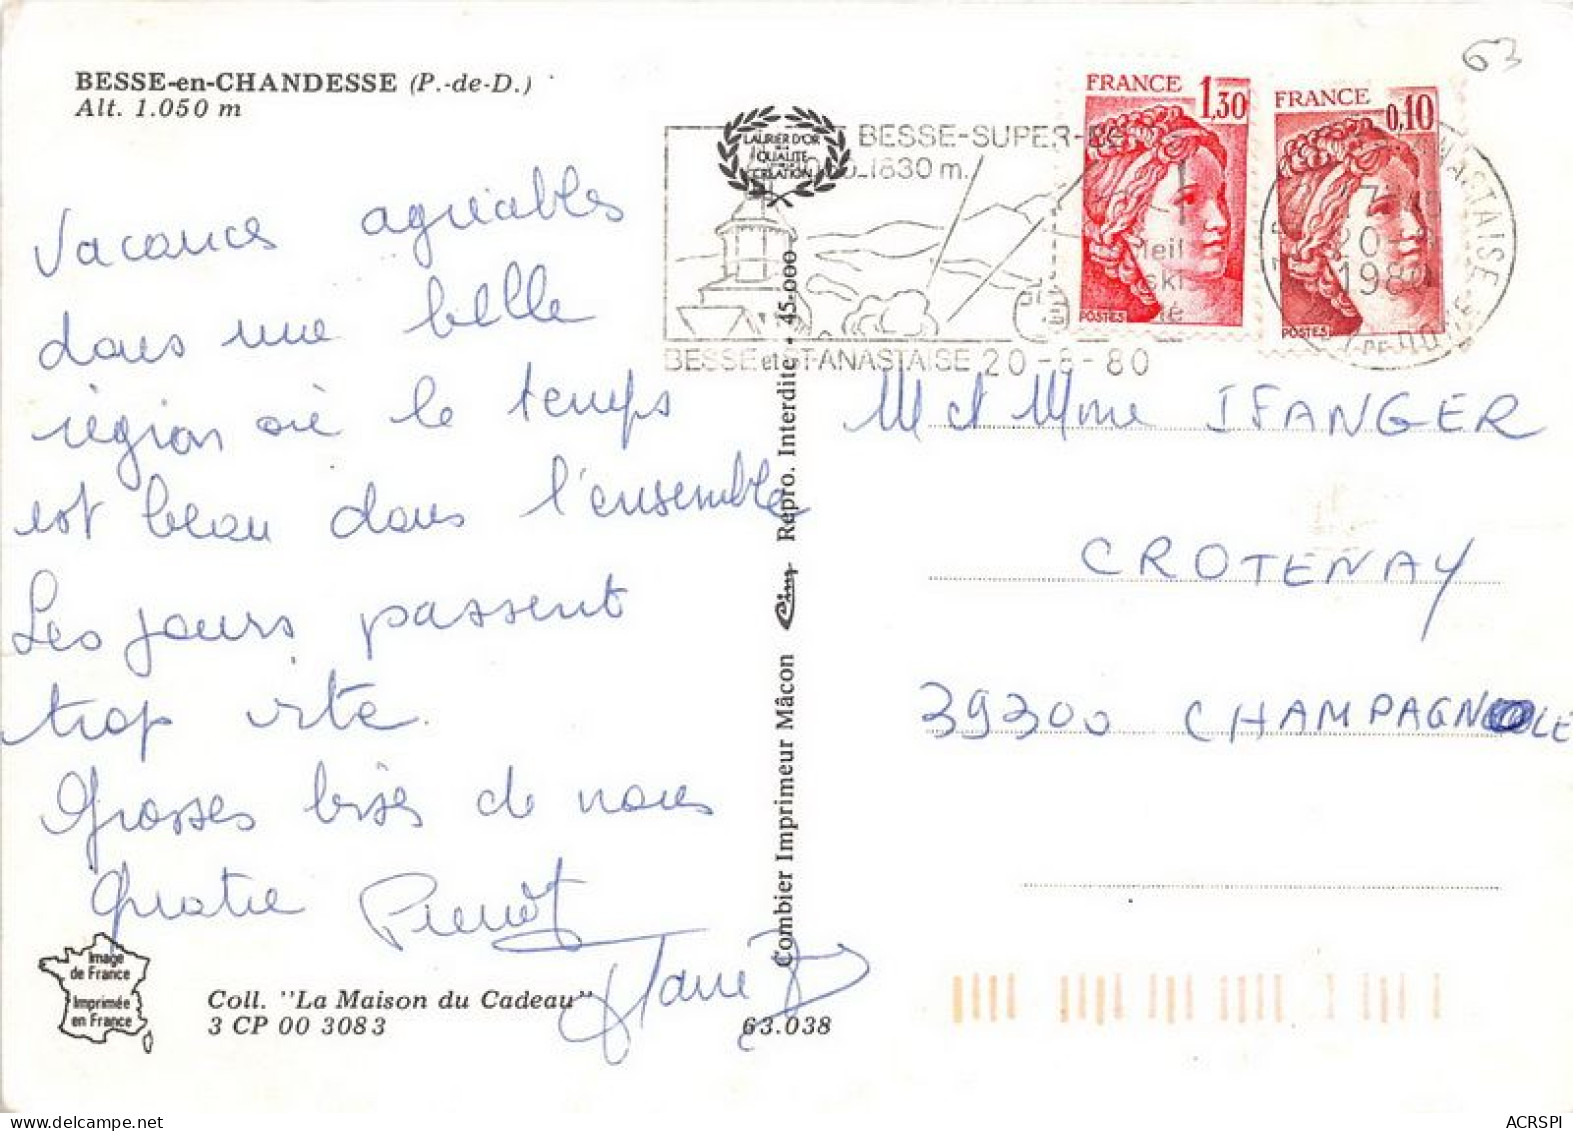 63
BESSE-en-CHANDESSE (P.-de-D.)
Alt. 1.050 m
LAURIER D'OR
QUALITÉ
CRÉATION
BESSE-SUPER-
1830 m.
BESSE et ST-ANASTAISE 20-8-80
FRANCE 1,30
POSTES
FRANCE 0,10
POSTES
17
20-
1980
ANASTAISE
Vacances agréables
dans une belle
région où le temps
est beau dans l'ensemble
Les jours passent
trop vite.
Grosses bises de nous
quatre Pierrot
M et Mme IFANGER
CROTENAY
39300 CHAMPAGNOLE
Combier Imprimeur Mâcon Cim Repro. Interdite - 45-000
Image
de France
Imprimée
en France
Coll. "La Maison du Cadeau"
3 CP 00 3083
63.038
ACRSPI